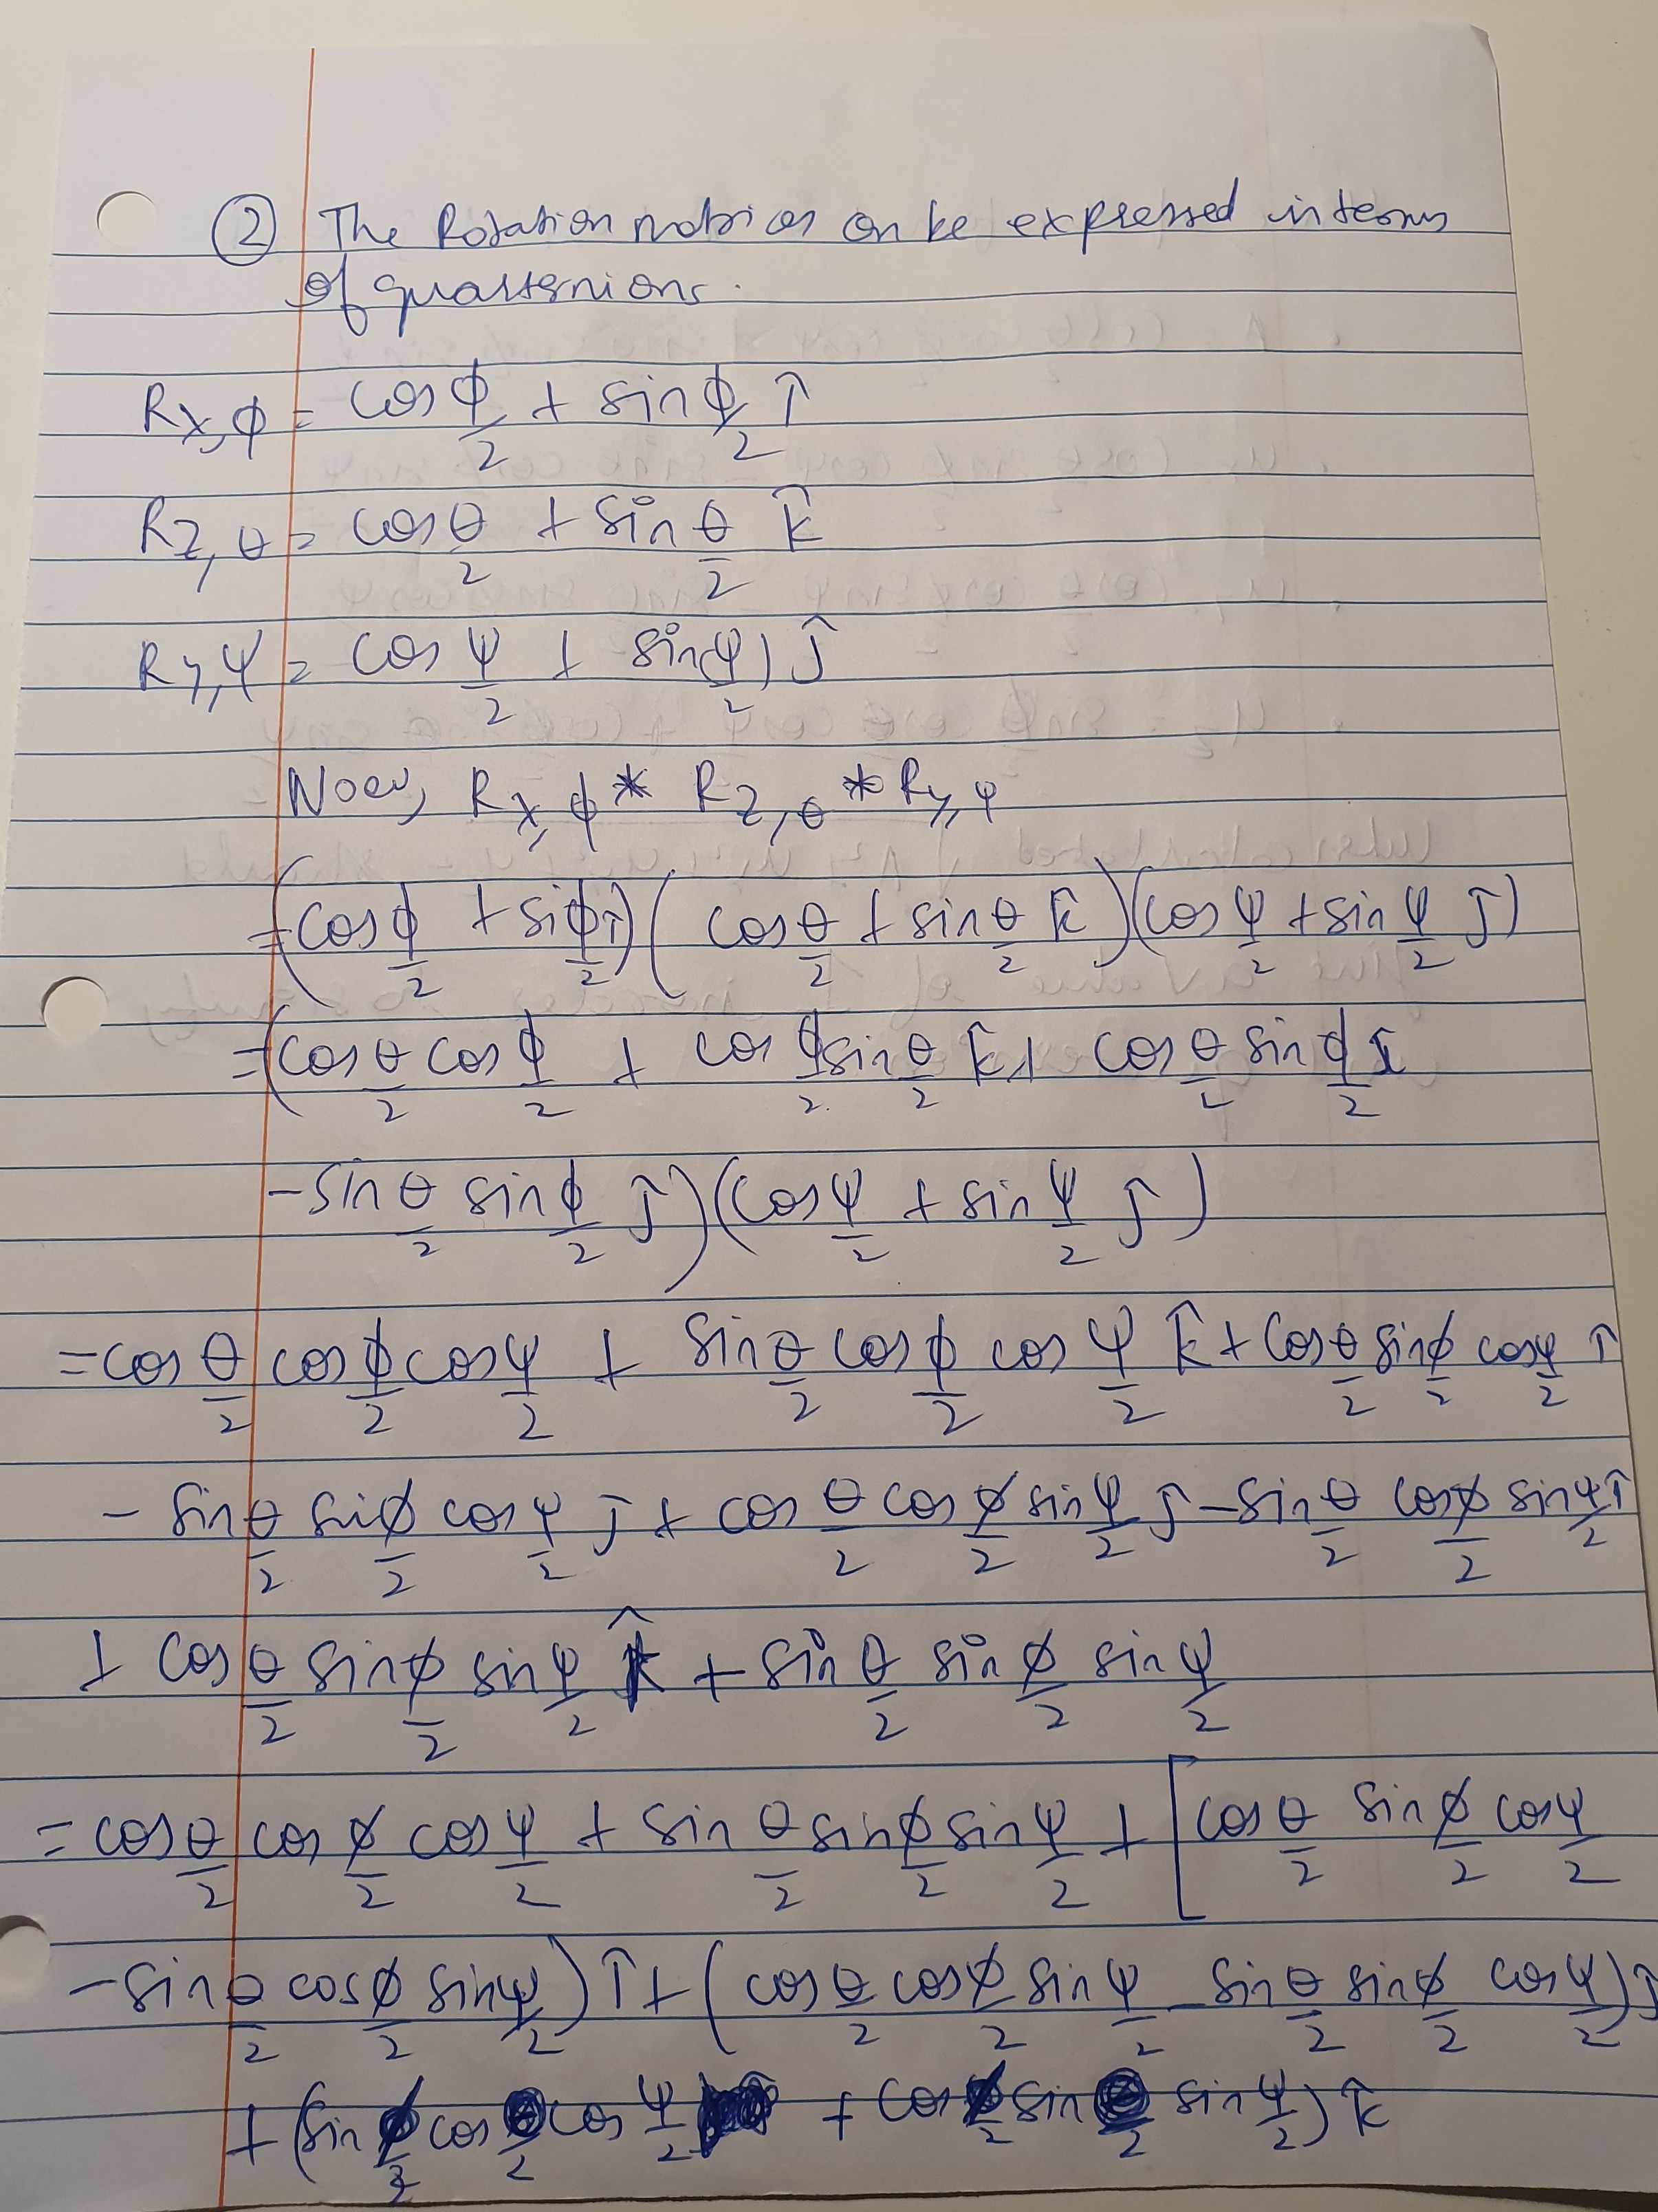 ② The Rotation matrices can be expressed in terms
of quarternions.
Rx,ϕ = cos ϕ/2 + sin ϕ/2 î
Rz,θ = cos θ/2 + sin θ/2 k̂
Ry,ψ = cos ψ/2 + sin(ψ/2) ĵ
Now, Rx,ϕ * Rz,θ * Ry,ψ
= (cos ϕ/2 + si ϕ/2 î)(cos θ/2 + sin θ/2 k̂)(cos ψ/2 + sin ψ/2 ĵ)
= (cos θ/2 cos ϕ/2 + cos ϕ/2 sin θ/2 k̂ + cos θ/2 sin ϕ/2 î
- sin θ/2 sin ϕ/2 ĵ)(cos ψ/2 + sin ψ/2 ĵ)
= cos θ/2 cos ϕ/2 cos ψ/2 + sin θ/2 cos ϕ/2 cos ψ/2 k̂ + cos θ/2 sin ϕ/2 cos ψ/2 î
- sin θ/2 sin ϕ/2 cos ψ/2 ĵ + cos θ/2 cos ϕ/2 sin ψ/2 ĵ - sin θ/2 cos ϕ/2 sin ψ/2 î
+ cos θ/2 sin ϕ/2 sin ψ/2 k̂ + sin θ/2 sin ϕ/2 sin ψ/2
= cos θ/2 cos ϕ/2 cos ψ/2 + sin θ/2 sin ϕ/2 sin ψ/2 + [cos θ/2 sin ϕ/2 cos ψ/2
- sin θ/2 cos ϕ/2 sin ψ/2) î + (cos θ/2 cos ϕ/2 sin ψ/2 - sin θ/2 sin ϕ/2 cos ψ/2) ĵ
+ (sin /2 cos /2 cos ψ/2 + cos /2 sin /2 sin ψ/2) k̂